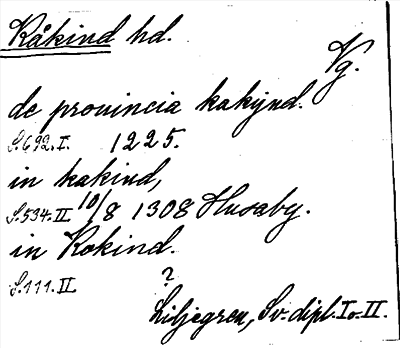 Kåkind hd.
Vg.
de provincia kakijnd.
S.692.I. 1225.
in kakind,
S.534.II 10/8 1308 Husaby.
in Kokind.
S.111.II. ?
Liljegren, Sv. dipl. I o. II.